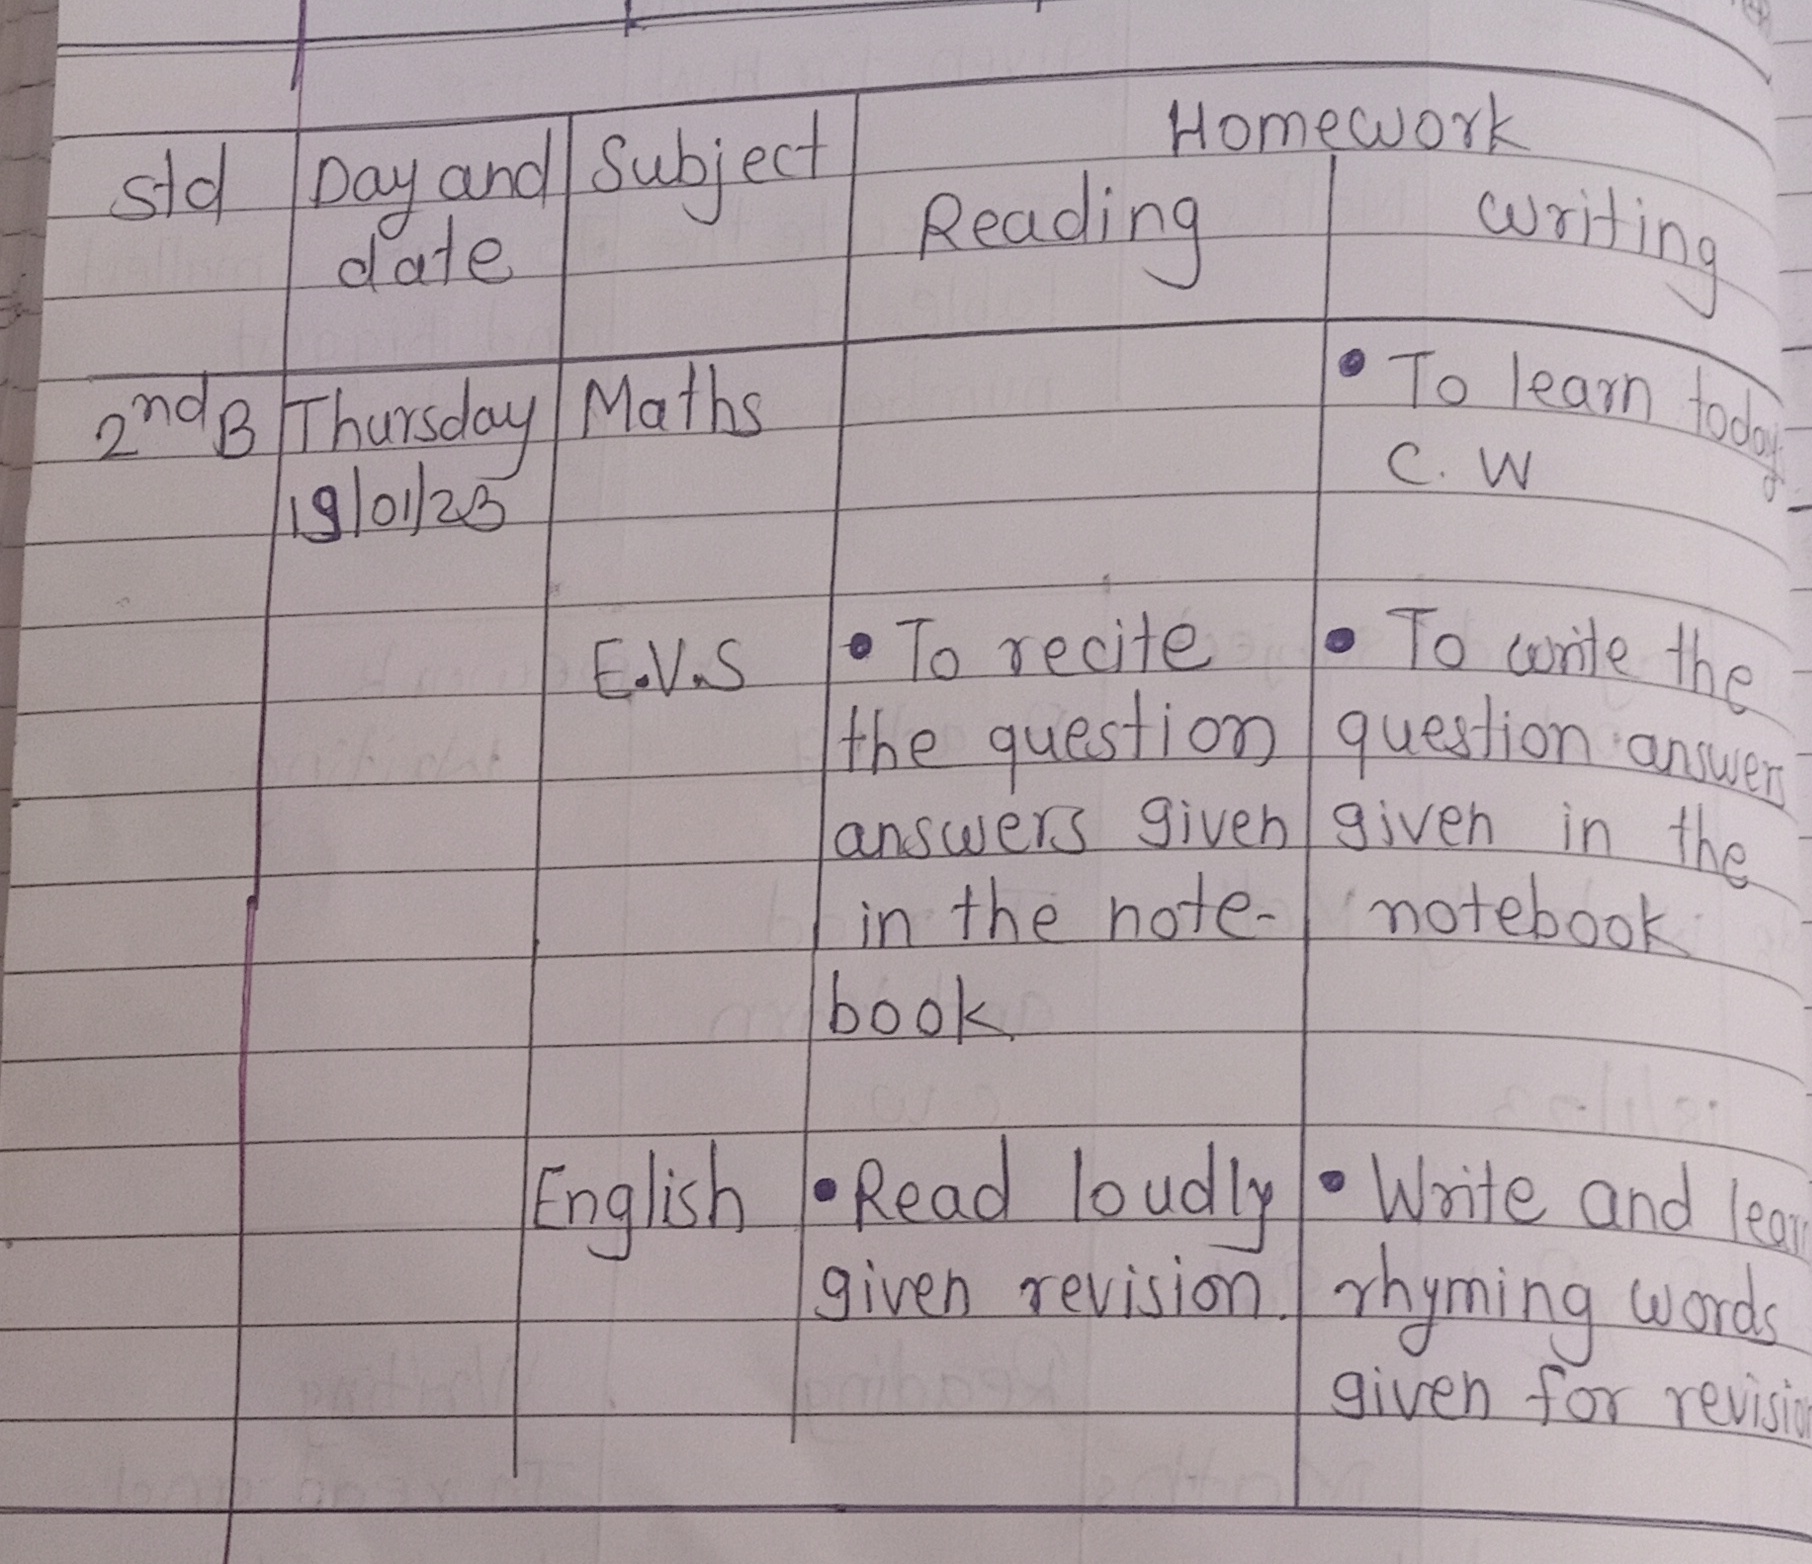 Homework
std Day and Subject Reading writing
date
2nd B Thursday Maths • To learn today
19/01/23 C. W
E.V.S • To recite • To write the
the question question answers
answers given given in the
in the note- notebook
book
English • Read loudly • Write and learn
given revision. rhyming words
given for revision